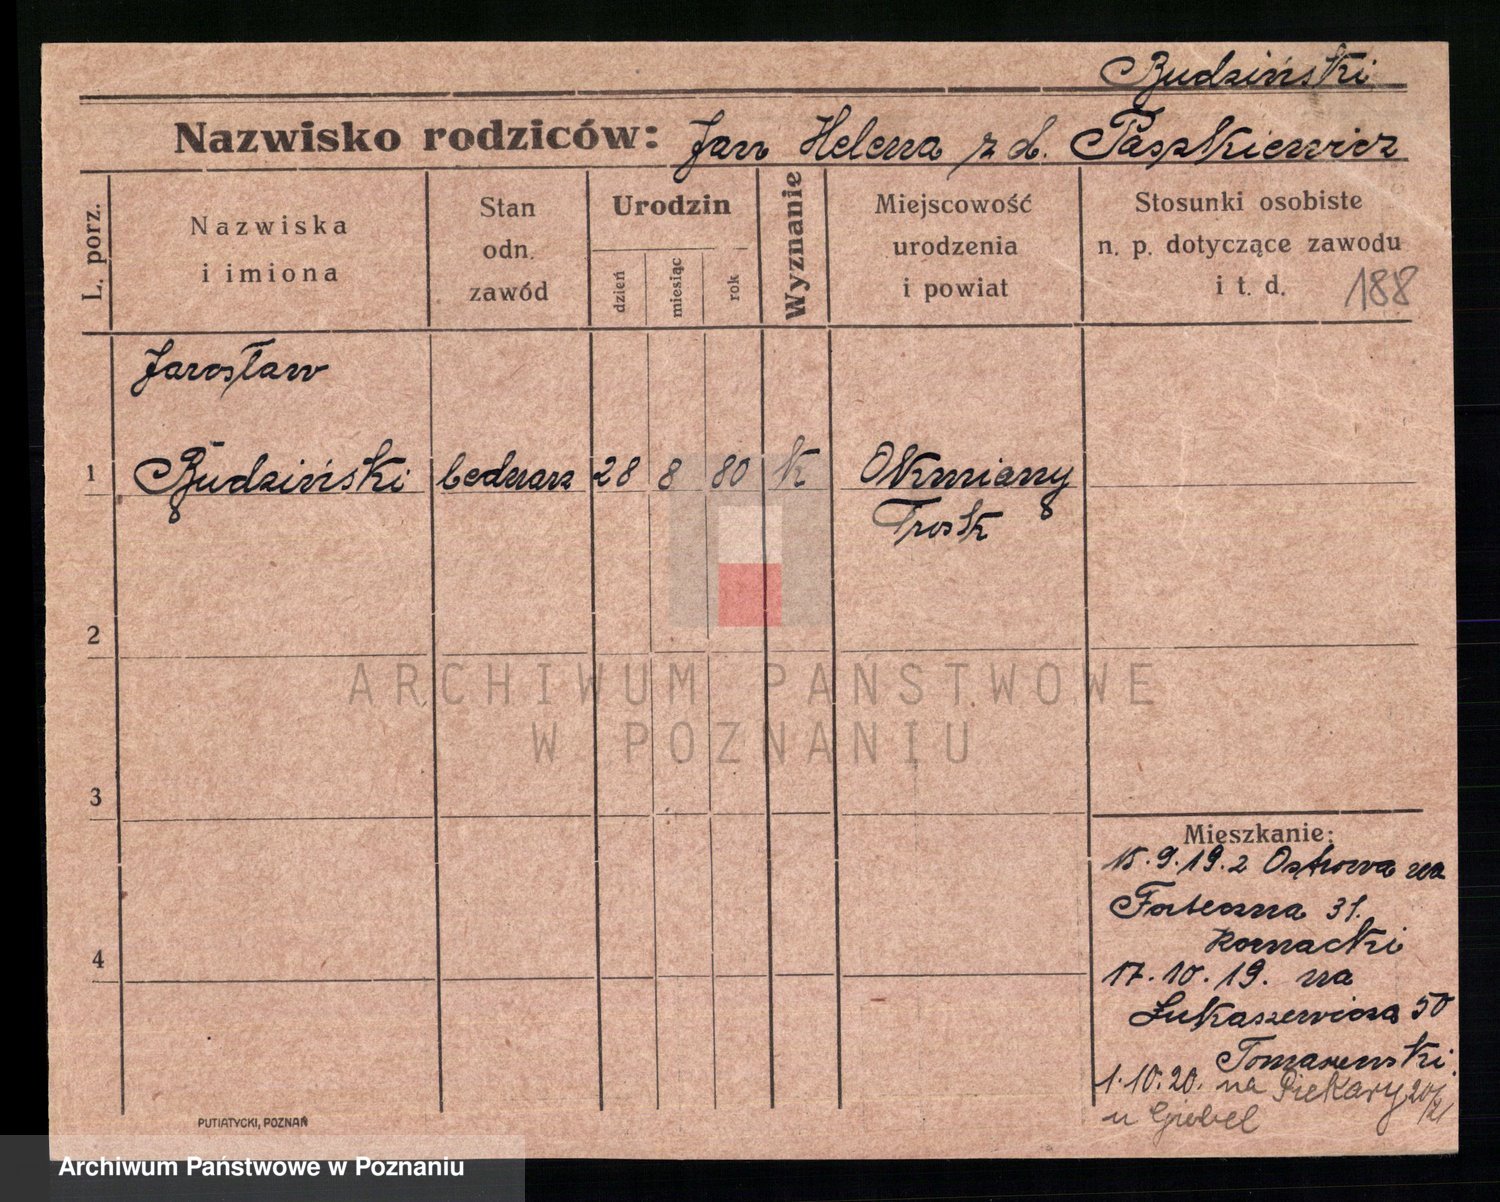 Budziński
Nazwisko rodziców: Jan Helena z d. Paszkiewicz
L. porz.
Nazwiska
i imiona
Stan
odn.
zawód
Urodzin
dzień
miesiąc
rok
Wyznanie
Miejscowość
urodzenia
i powiat
Stosunki osobiste
n. p. dotyczące zawodu
i t. d. 188
Jarosław
1 Budziński bednarz 28 8 80 k Okmiany
Trosk
2
3
4
Mieszkanie:
15.9.19. z Ostrowa na
Forteczna 31.
Kornacki
17.10.19. na
Łukaszewicza 50
Tomaszewski.
1.10.20. na Piekary 20/21
u Giebel
PUTIATYCKI, POZNAŃ
ARCHIWUM PAŃSTWOWE
W POZNANIU
Archiwum Państwowe w Poznaniu